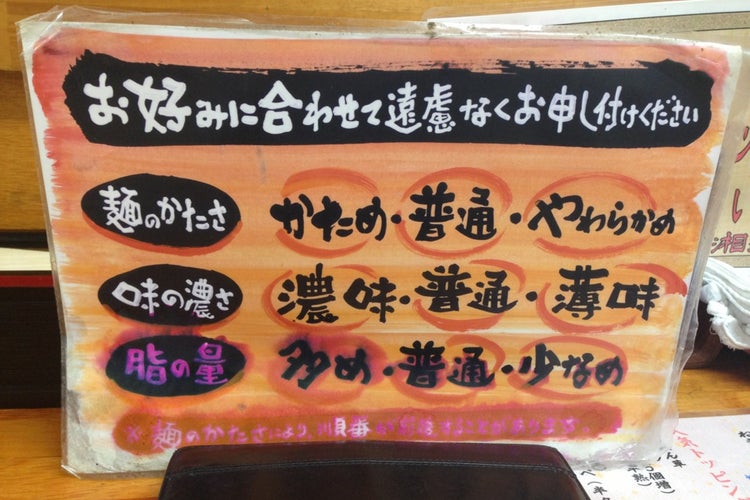 お好みに合わせて遠慮なくお申し付けください
麺のかたさ かため・普通・やわらかめ
味の濃さ 濃味・普通・薄味
脂の量 多め・普通・少なめ
※麺のかたさにより、順番が前後することがあります。